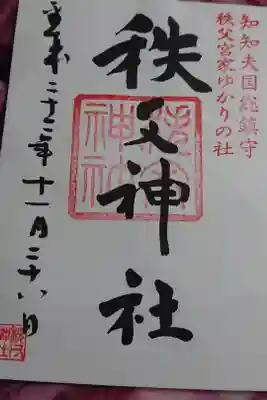 知知夫国総鎮守
秩父宮家ゆかりの社
秩父神社
平成二十六年十一月二十八日